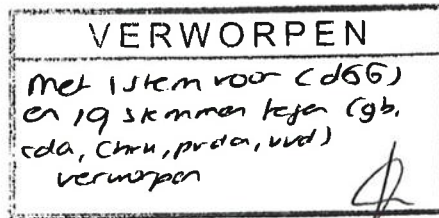 VERWORPEN
met 1 stem voor (d66)
en 19 stemmen tegen (gb,
cda, Chru, pvda, vvd)
verworpen